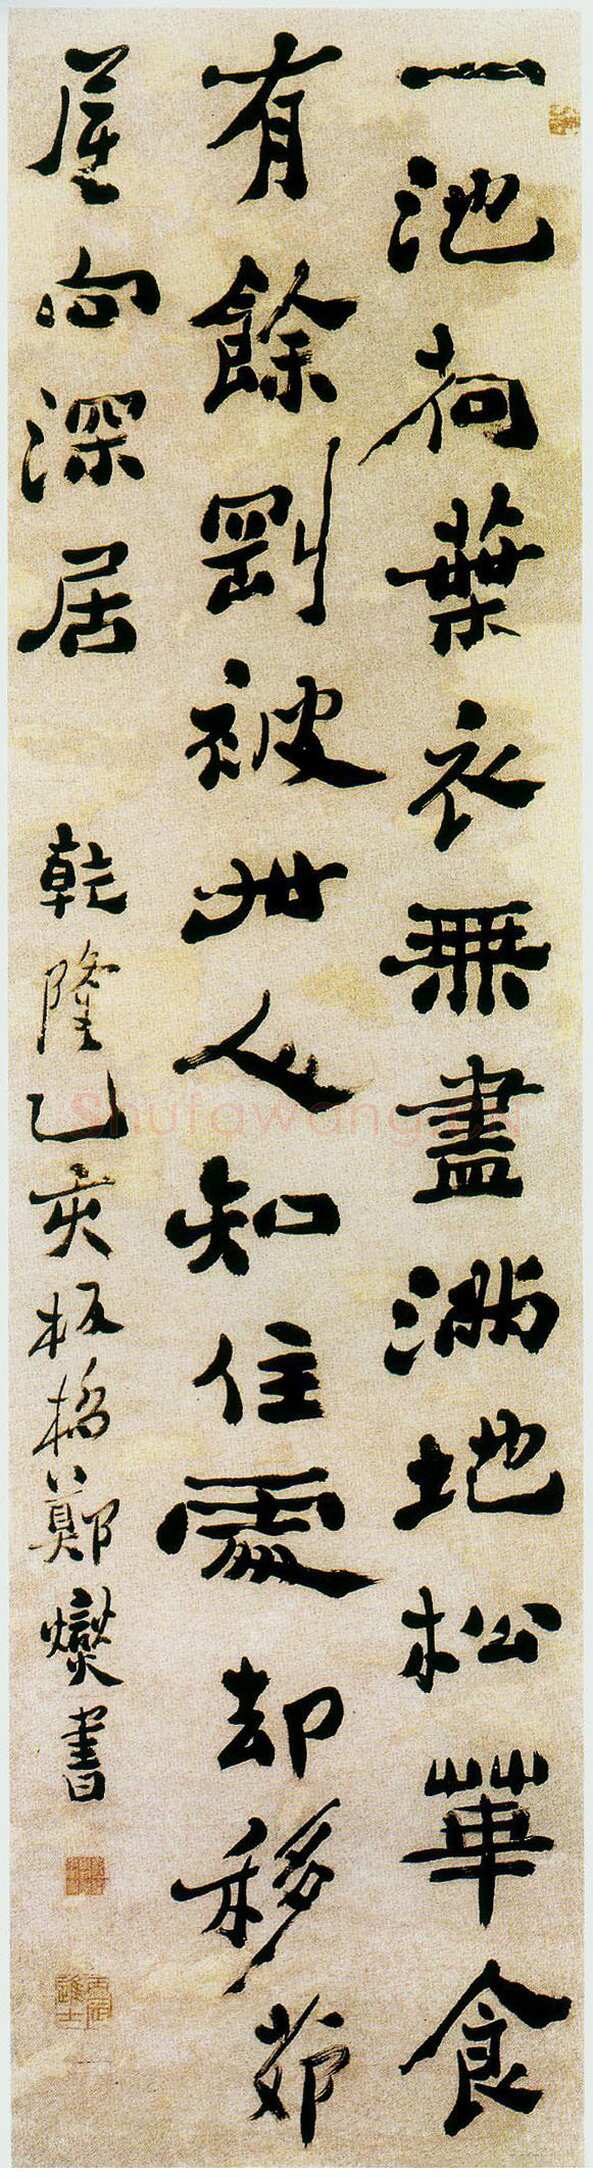 一池荷葉衣無盡滿地松華食
有餘剛被世人知住處却移茆
屋向深居
乾隆乙亥板橋鄭燮書
Shufawang.cn